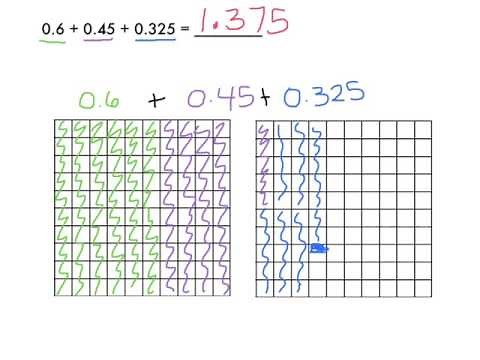 0.6 + 0.45 + 0.325 = 1.375
0.6 + 0.45 + 0.325